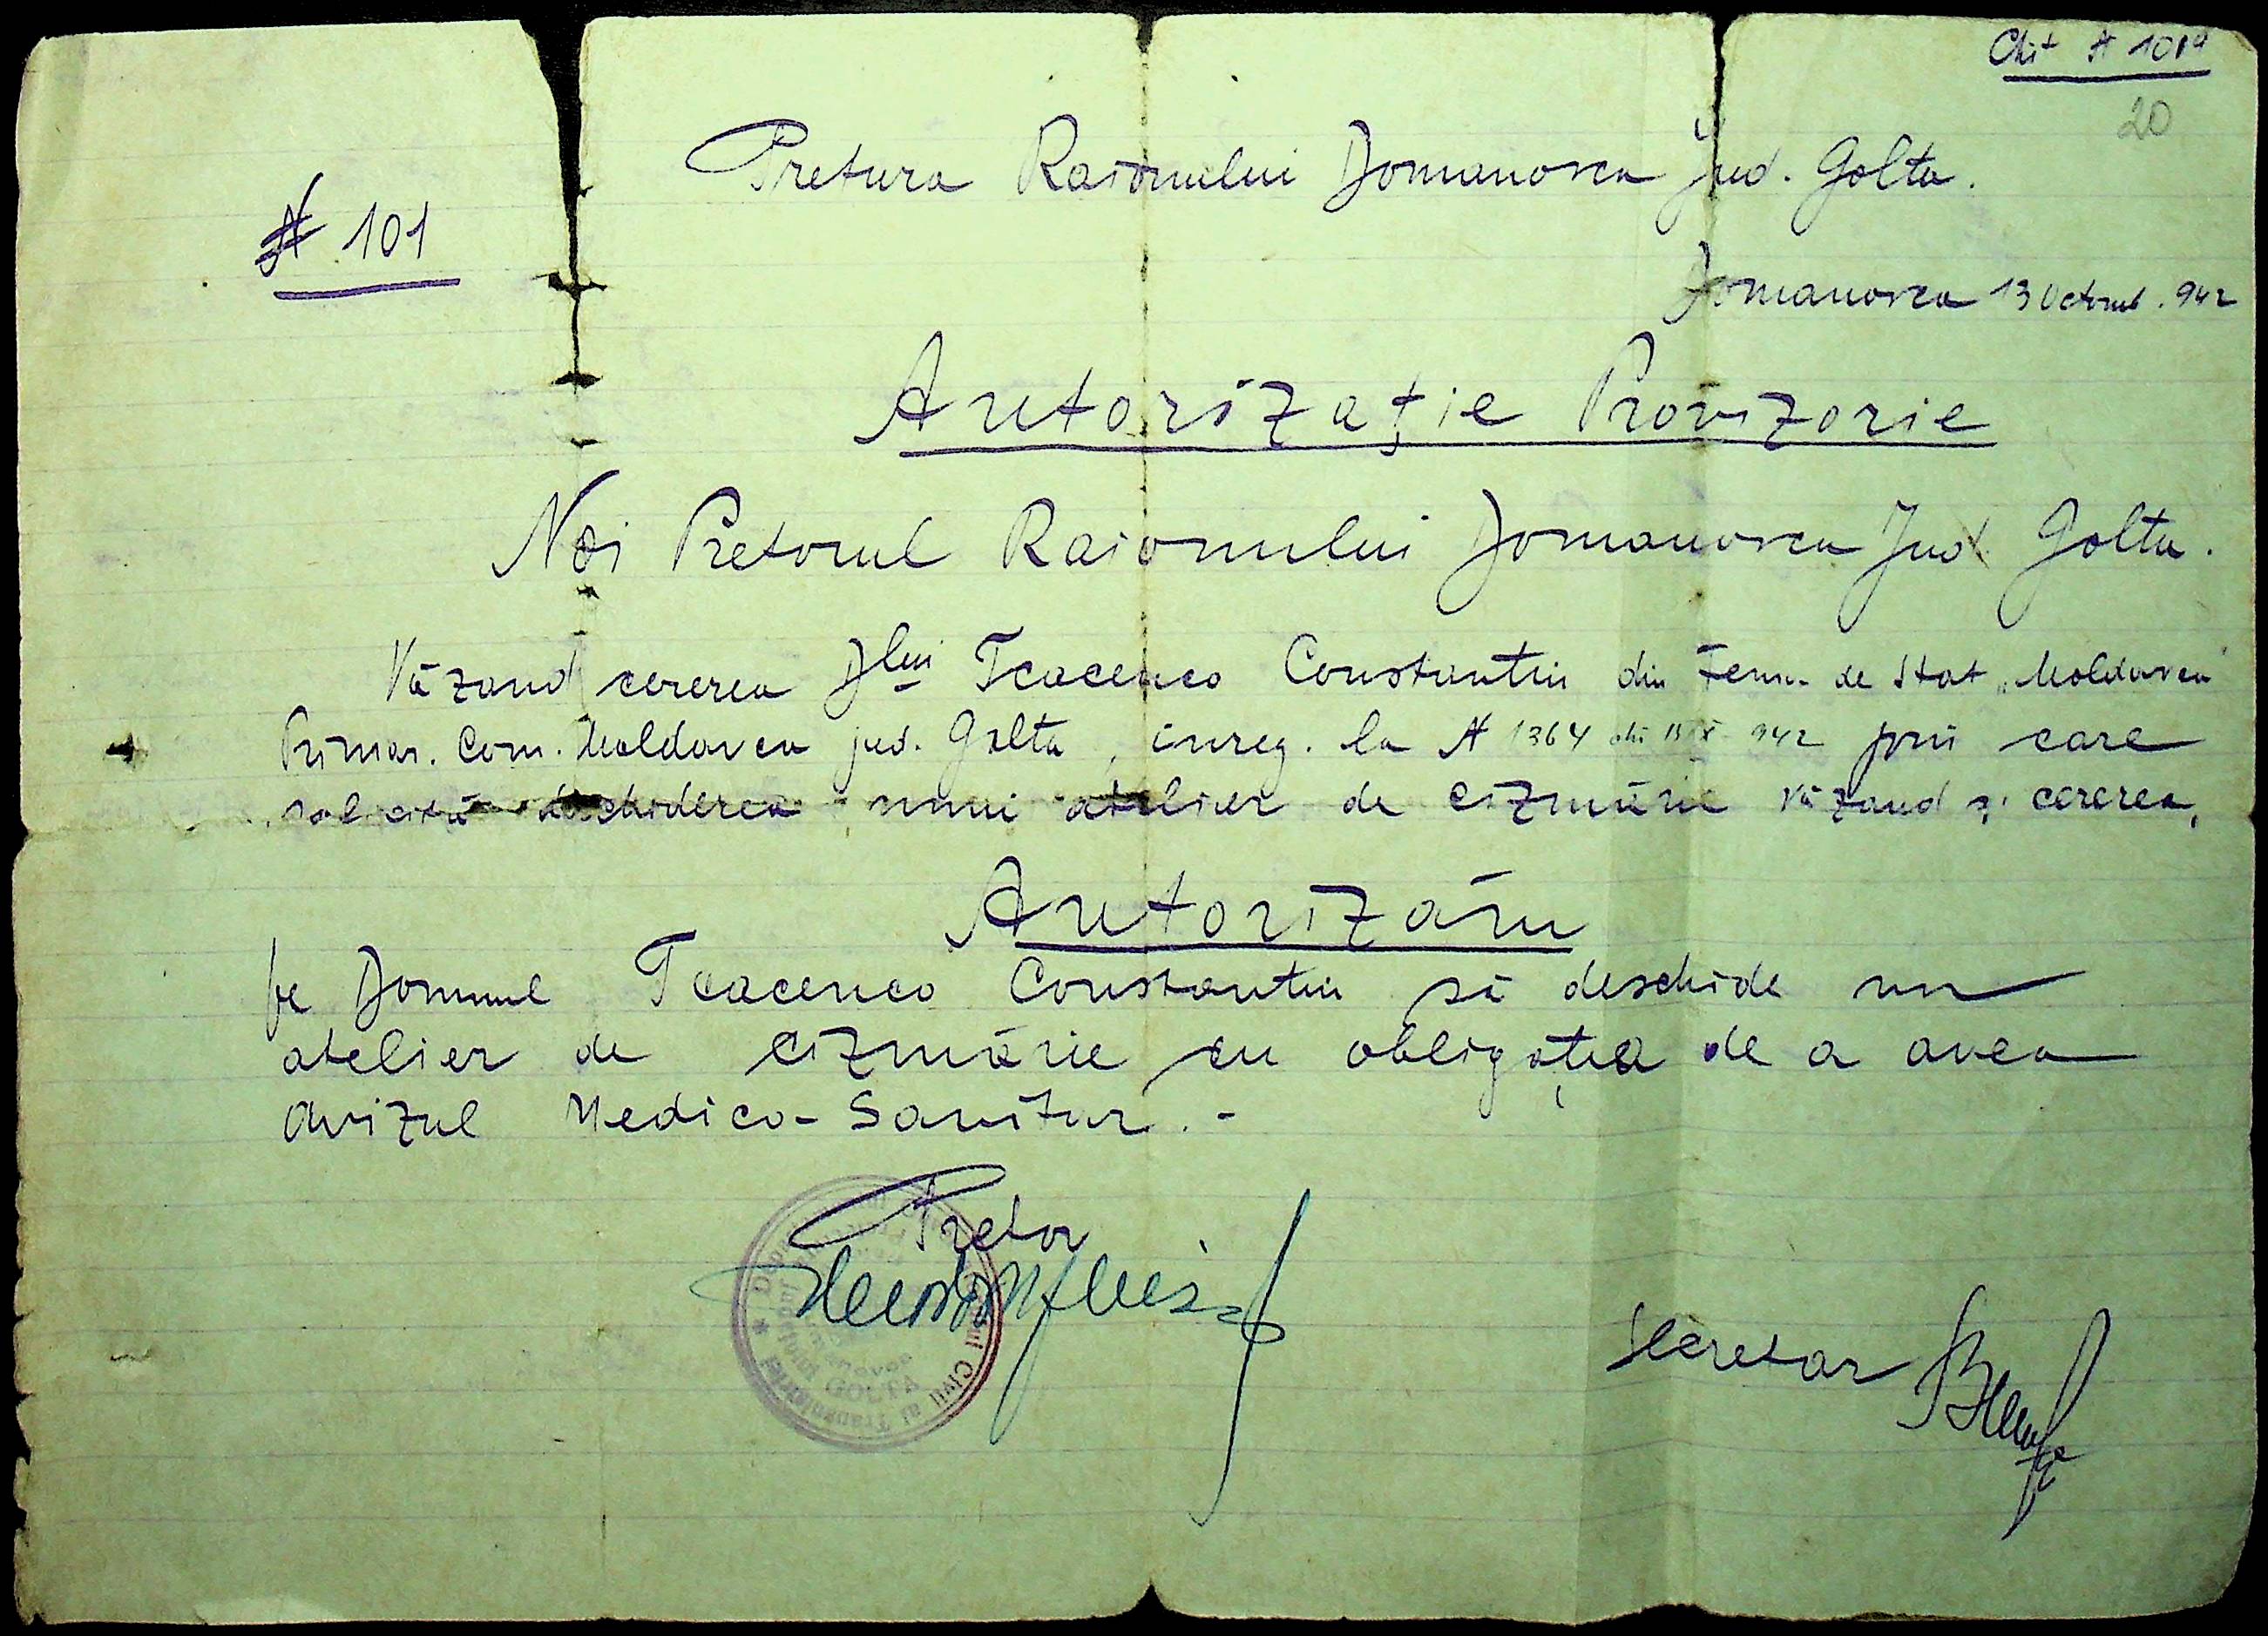 Chit № 101
20
Pretura Raionului Domanovca Jud. Golta.
№ 101
Domanovca 13 Octomb. 942
Autorizaţie Provizorie
Noi Pretorul Raionului Domanovca Jud. Golta.
Văzand cererea Dlui Tcacenco Constantin din Ferm. de Stat „Moldovca"
Primar. Com. Moldovca jud. Golta, inreg. la № 1364 din 942 prin care
solicită deschiderea unui atelier de cizmărie văzand și cererea,
Autorizăm
pe Domnul Tcacenco Constantin să deschide un
atelier de cizmărie cu obligaţia de a avea
avizul Medico-Sanitar.-
Pretor
GOLTA
Secretar